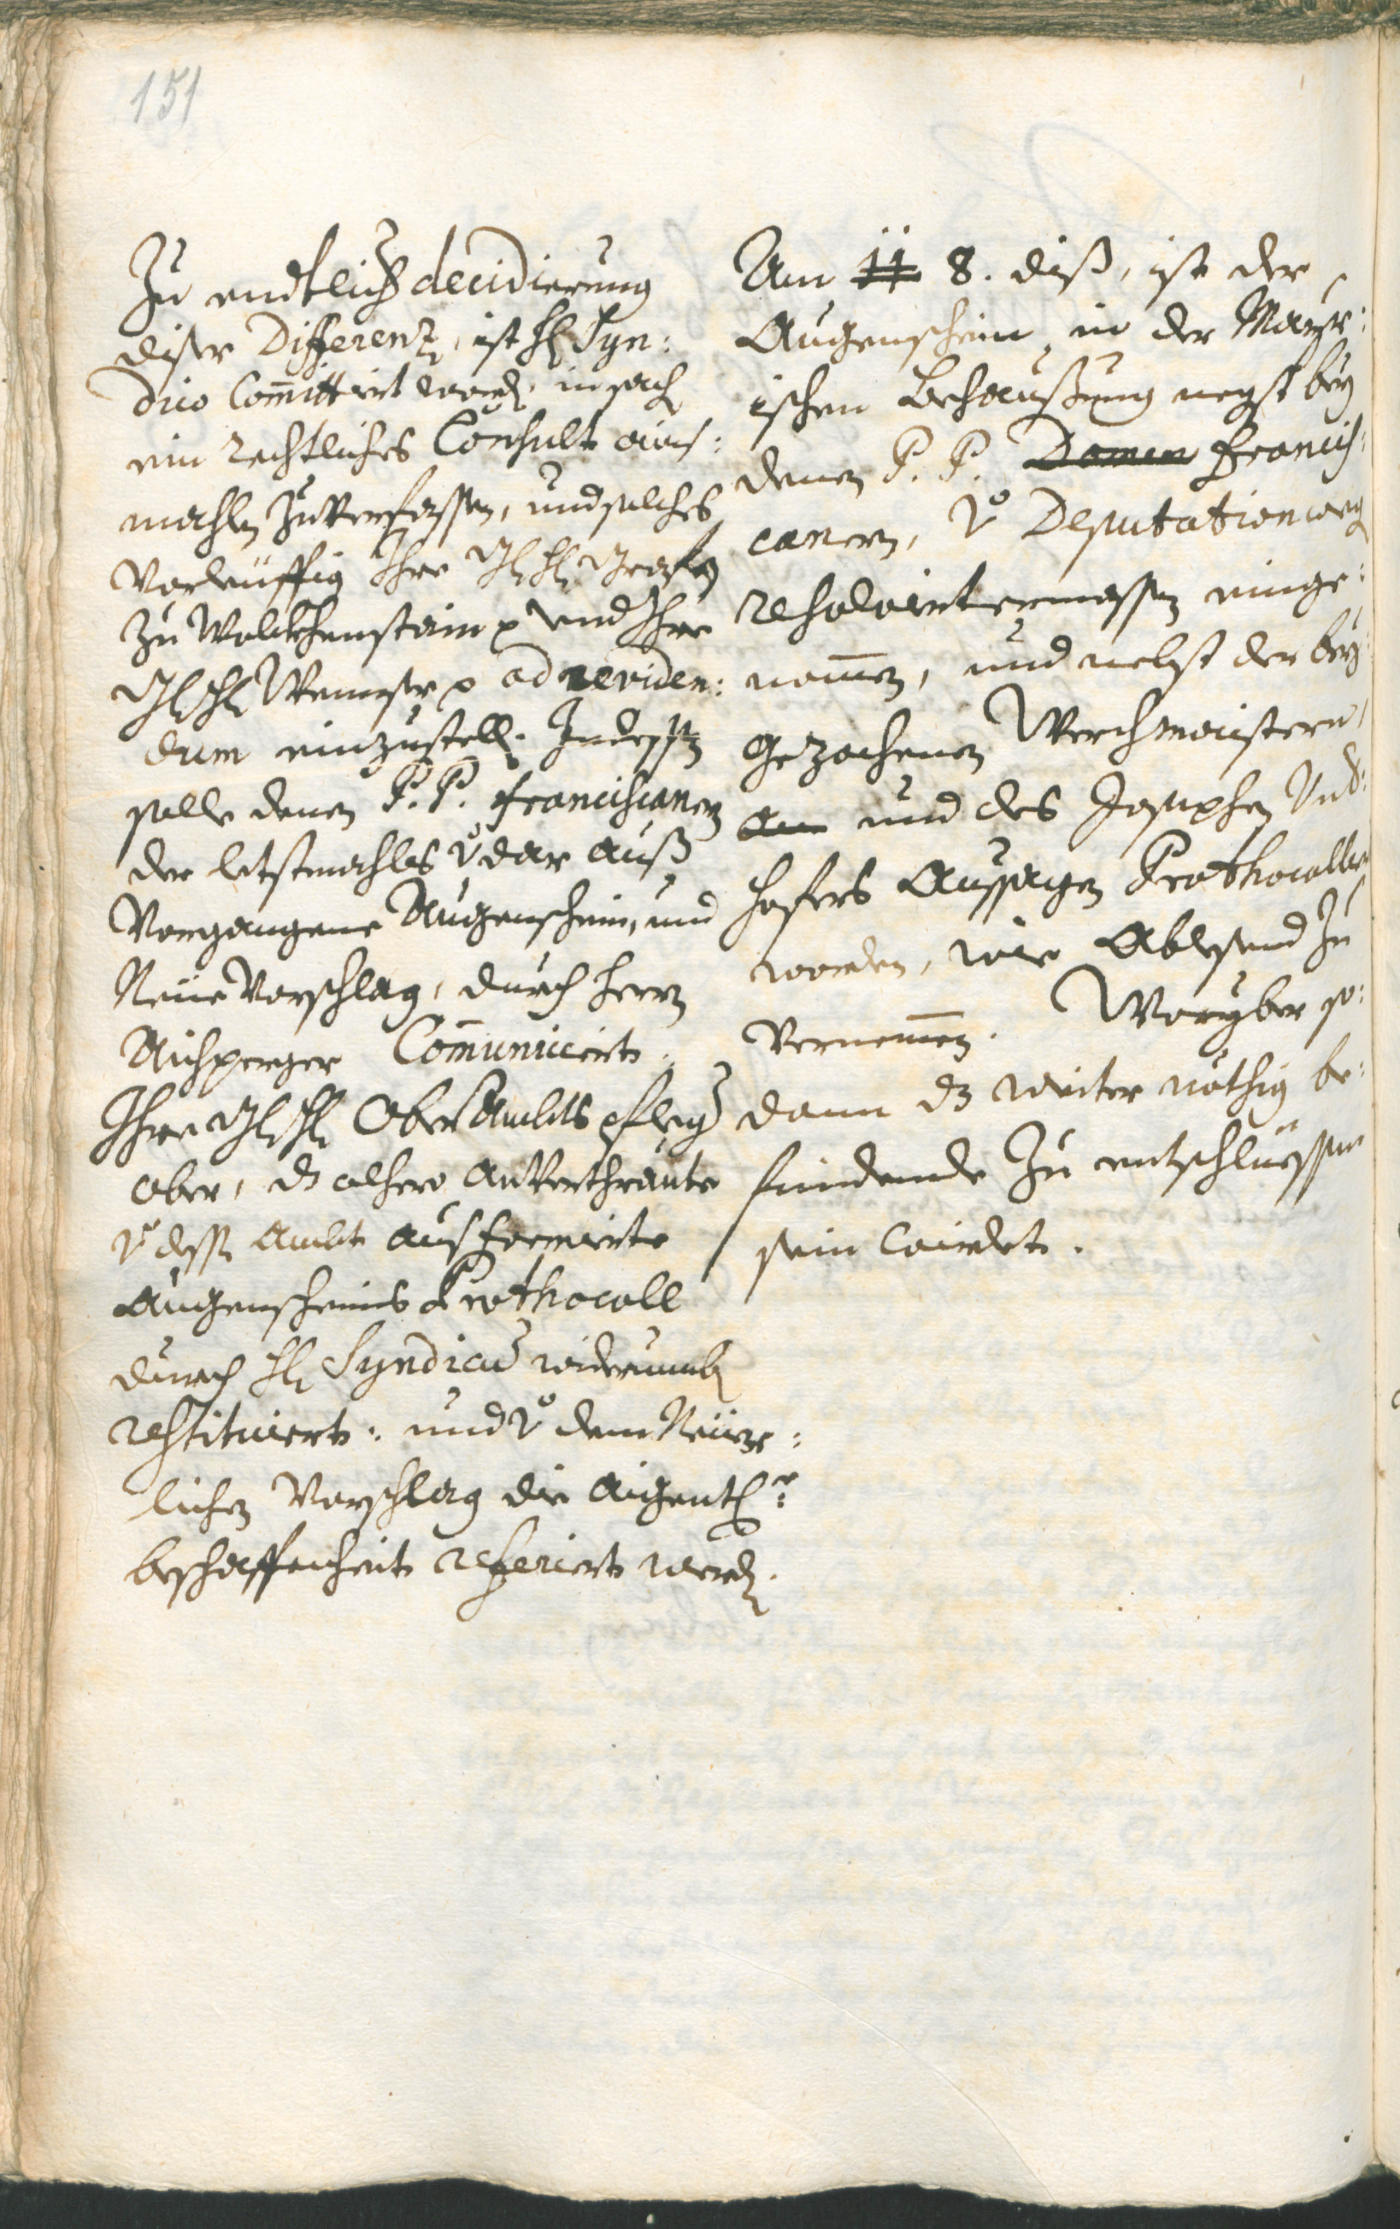 151
Zu endtlich decidierung
diser Differenz, ist H: Syn:
dico Com̅ittirt word: in sach
ein rechtliches Consult ains:
mahls zuverfassen, und solches
Vorleuffig Ihre Gl: H: Grafen
zu Wolckhenstain p und Ihre
Gl: H: Wenser p ad reviden:
dum einzustell: Indessen
solle denen P. P. Franciscanern
der letstmahls v̊ dar auß
Vorgangene Augenschein, und
Neue Vorschlag, durch Herrn
Aichperger Com̅uniciert:
Ihre Gl: H: Ober Ambts pfleg
aber, dz alhero Anverthraute
v̊ dess: Ambt ausformierte
Augenscheins Prothocoll
durch H: Syndicu̅ widerumb
restituiert: und v̊ dem Neür:
lichen Vorschlag die aigentl:
beschaffenheit referiert werd:
Am 11 8. diß, ist der
Augenschein, in der Mayr:
ischen Behaußung negst bey
denen P. P. Domin Francis:
canern, v̊ Deputation weg
resolviertermassen einge:
nom̅en, und nebst der bey:
gezochenen Werchmaistern,
an und des Josephen Und:
hofers Aussagen Prothocolliert
worden, wie Ablesend zu
Vernem̅en. Woryber so:
dann dz weiter nöthig be:
findende zu entschliessen
sein wirdet.